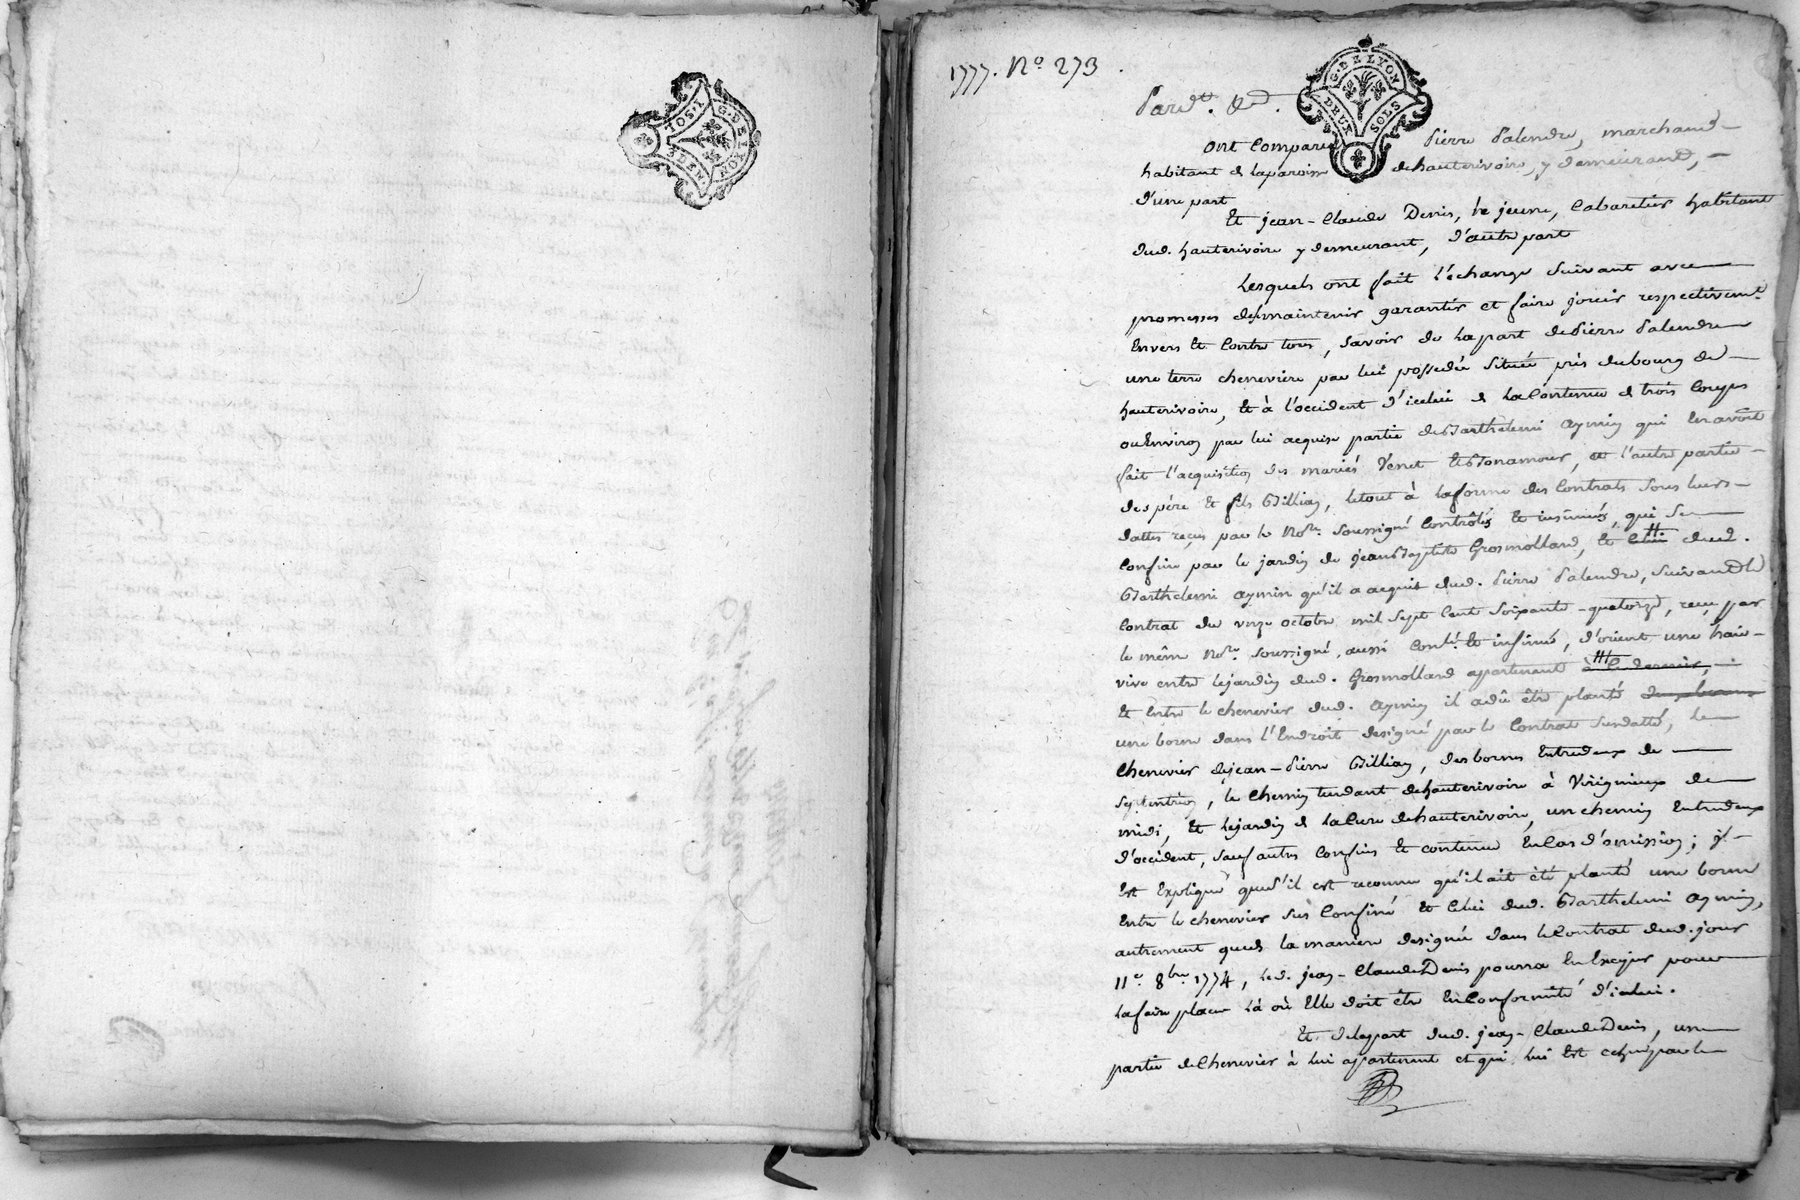 G. DE LYON
1 SOL
8 DEN.
1777. No. 273.
G. DE LYON
DEUX SOLS
Pard.t &.d.
Ont Comparu Pierre Palendre, marchand
habitant de la paroisse de hauterivoire, y demeurand,
d'une part
Et jean-Claude Denis, le jeune, Cabaretier habitant
dud. hauterivoire y demeurant, d'autre part
Lesquels ont fait l'échange Suivant avec
promesses de maintenir garantir et faire jouir respectivemt.
Envers Et Contre tous, Savoir de la part de Pierre Palendre
une terre cheneviere par lui possedée Située près du bourg de
hauterivoire, Et à l'occident d'icelui de la Contenue de trois Coupes
ou Environ par lui acquise partie de Barthelemi aymin qui En avoit
fait l'acquisition des mariés Venet Et Bonamour, et l'autre partie
des père Et fils Billian, le tout à la forme des Contrats Sous leurs
dattes reçus par le Nore. Soussigné Contrôlés Et insinués, qui Se
Confine par le jardin de jean Baptiste Grosmollard, Et celui dud.
Barthelemi aymin qu'il a acquit dud. Pierre Palendre, Suivand le
Contrat du onze octobre mil Sept Cent Soixante-quatorze, reçu par
le même Nore. Soussigné, aussi Conlé. Et insinué, d'orient une haie
vive entre le jardin dud. Grosmollard apartenant à ce dernier,
Et Entre le chenevier dud. aymin il a dû être planté
une borne dans l'Endroit designé par le Contrat Susdatté, le
Chenevier de jean-Pierre Billian, des bornes Entredeux de
Septentrion, le Chemin tendant de hauterivoire à Virignieux de
midi, Et le jardin de la Cure de hauterivoire, un chemin Entredeux
d'occident, Sauf autres Confins Et contenue En Cas d'omission; il
Est Expliqué que S'il est reconnu qu'il ait été planté une borne
Entre le chenevier Sus Confiné Et Celui dud. Barthelemi aymin,
autrement que de la maniere designée dans le Contrat dud. jour
11e. 8bre. 1774, led. jean-Claude Denis pourra En Exiger pour
la faire placer là où Elle doit être En Conformité d'icelui.
Et de la part dud. jean-Claude Denis, une
partie de Chenevier à lui appartenant et qui lui Est par le